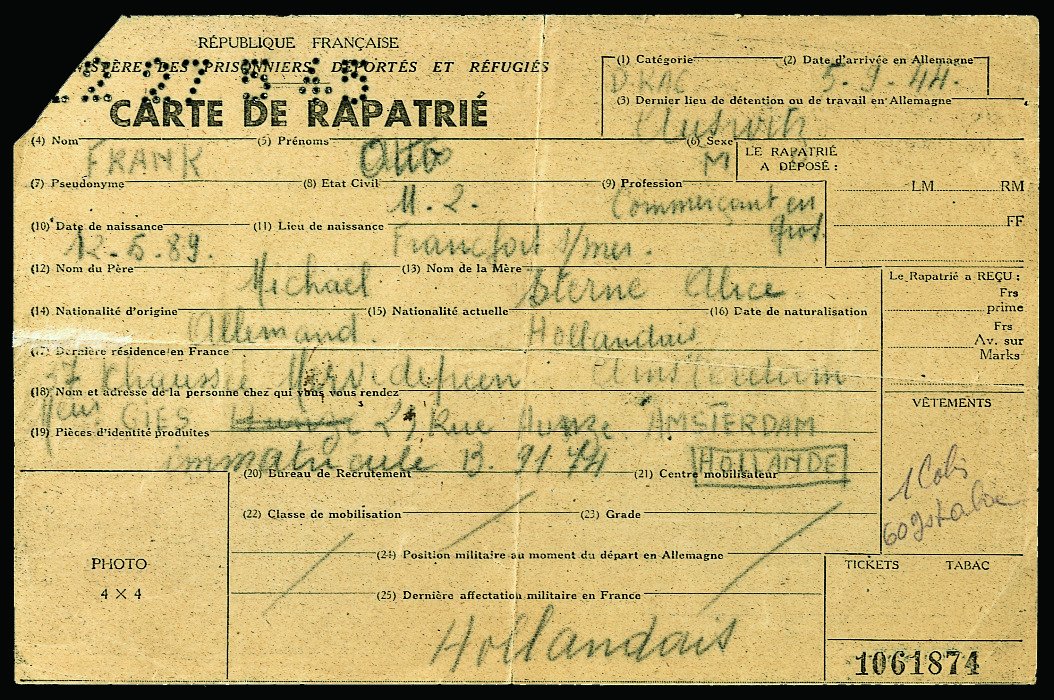 RÉPUBLIQUE FRANÇAISE
MINISTÈRE DES PRISONNIERS DÉPORTÉS ET RÉFUGIÉS
CARTE DE RAPATRIÉ
(1) Catégorie (2) Date d'arrivée en Allemagne
5-9-44.
(3) Dernier lieu de détention ou de travail en Allemagne
(4) Nom (5) Prénoms (6) Sexe
FRANK Otto M
LE RAPATRIÉ
A DÉPOSÉ :
LM RM
FF
(7) Pseudonyme (8) Etat Civil (9) Profession
M. 2. Commerçant en
gros.
(10) Date de naissance (11) Lieu de naissance
12-5-89. Francfort s/mer.
(12) Nom du Père (13) Nom de la Mère
Michael Sterne Alice
Le Rapatrié a REÇU :
Frs
prime
Frs
Av. sur
Marks
(14) Nationalité d'origine (15) Nationalité actuelle (16) Date de naturalisation
Allemand. Hollandais
(17) Dernière résidence en France
Amsterdam
(18) Nom et adresse de la personne chez qui vous vous rendez
GIES 25 Rue Hunze. AMSTERDAM
HOLLANDE
VÊTEMENTS
1 Colis
(19) Pièces d'identité produites
immatricule B. 9174
(20) Bureau de Recrutement (21) Centre mobilisateur
(22) Classe de mobilisation (23) Grade
(24) Position militaire au moment du départ en Allemagne
(25) Dernière affectation militaire en France
Hollandais
PHOTO
4 × 4
TICKETS TABAC
1061874